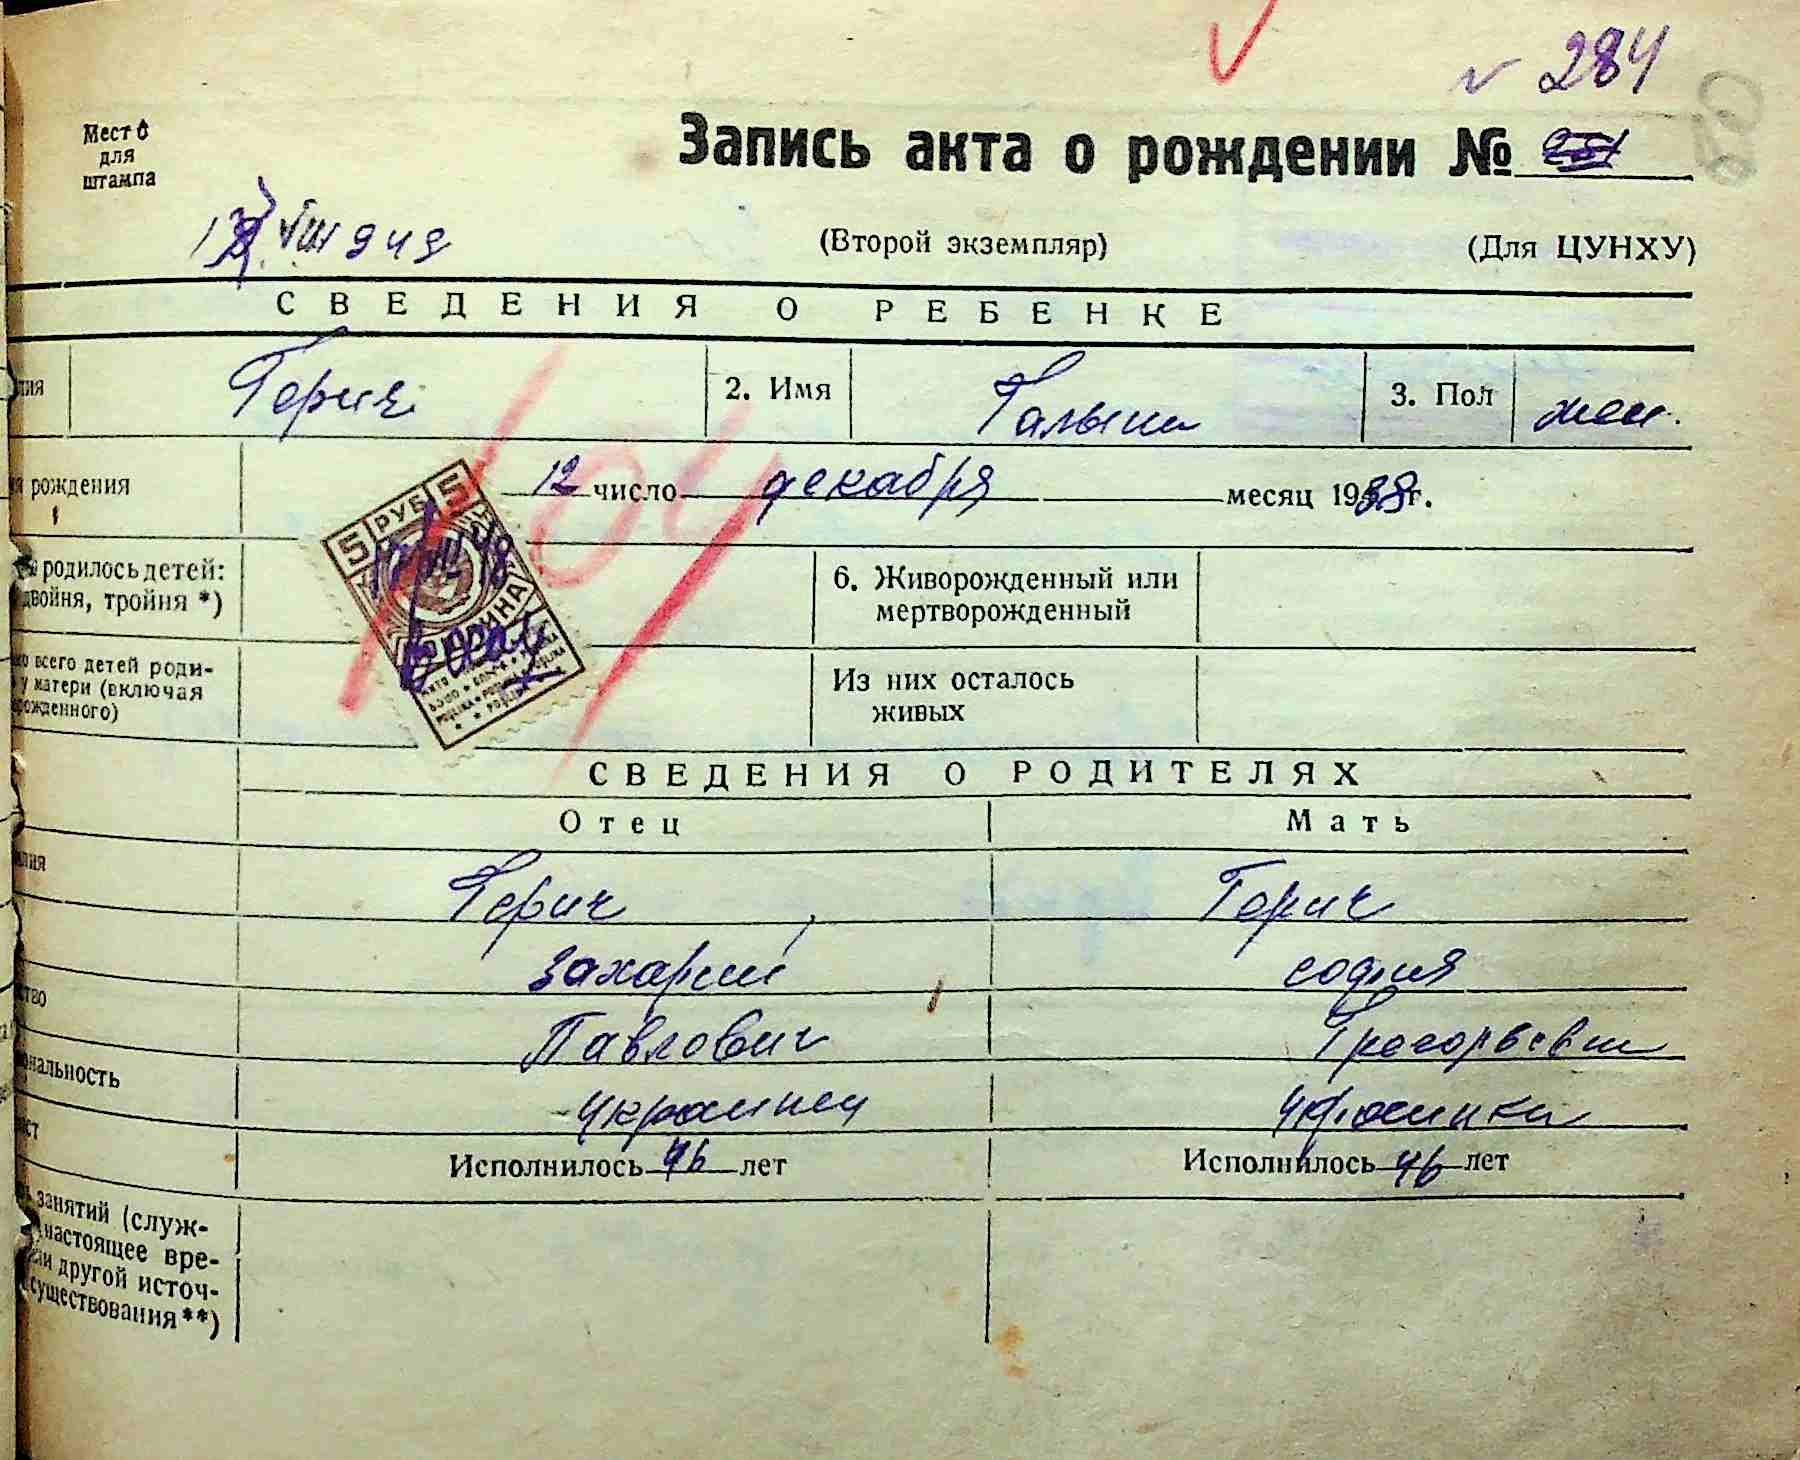 № 284
Место
для
штампа
Запись акта о рождении №
VIII 949
(Второй экземпляр)
(Для ЦУНХУ)
СВЕДЕНИЯ О РЕБЕНКЕ
лия Герич 2. Имя Галына 3. Пол жен.
я рождения 12 число декабря месяц 1938 г.
5 РУБ 5
родилось детей:
двойня, тройня *)
6. Живорожденный или
мертворожденный
всего детей роди-
у матери (включая
рожденного)
Из них осталось
живых
СВЕДЕНИЯ О РОДИТЕЛЯХ
Отец Мать
лия Герич Герич
Захарий София
ство Павлович Григорьевна
ональность украинец украинка
ст Исполнилось 46 лет Исполнилось 46 лет
занятий (служ-
настоящее вре-
или другой источ-
существования **)